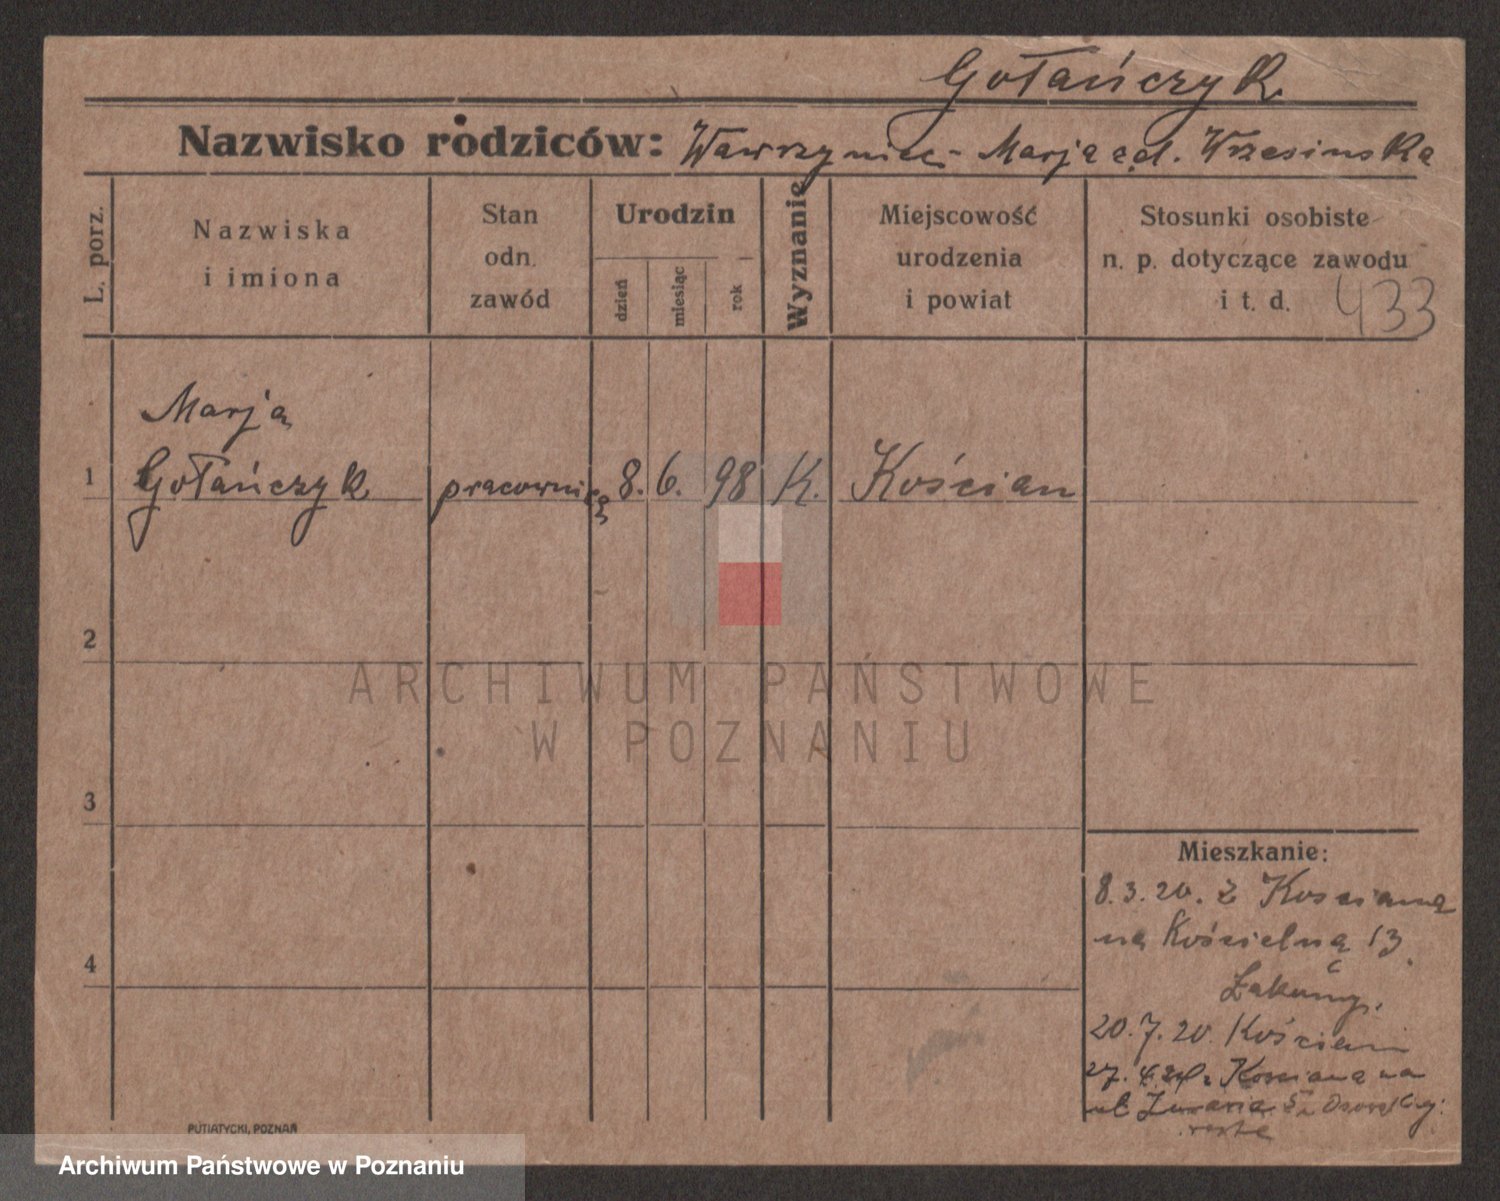 Gołańczyk
Nazwisko rodziców: Wawrzyniec - Marja z d. Wrzesinska
L. porz.
Nazwiska i imiona
Stan odn. zawód
Urodzin
dzień
miesiąc
rok
Wyznanie
Miejscowość urodzenia i powiat
Stosunki osobiste n. p. dotyczące zawodu i t. d.
433
Marja
1 Gołańczyk pracownica 8. 6. 98 K. Kościan
2
ARCHIWUM PAŃSTWOWE
W POZNANIU
3
Mieszkanie:
8.3.20. z Kosciana
na Kościelną 13
4
20.7.20. Kościan
Kosciana na
PUTIATYCKI, POZNAŃ
Archiwum Państwowe w Poznaniu